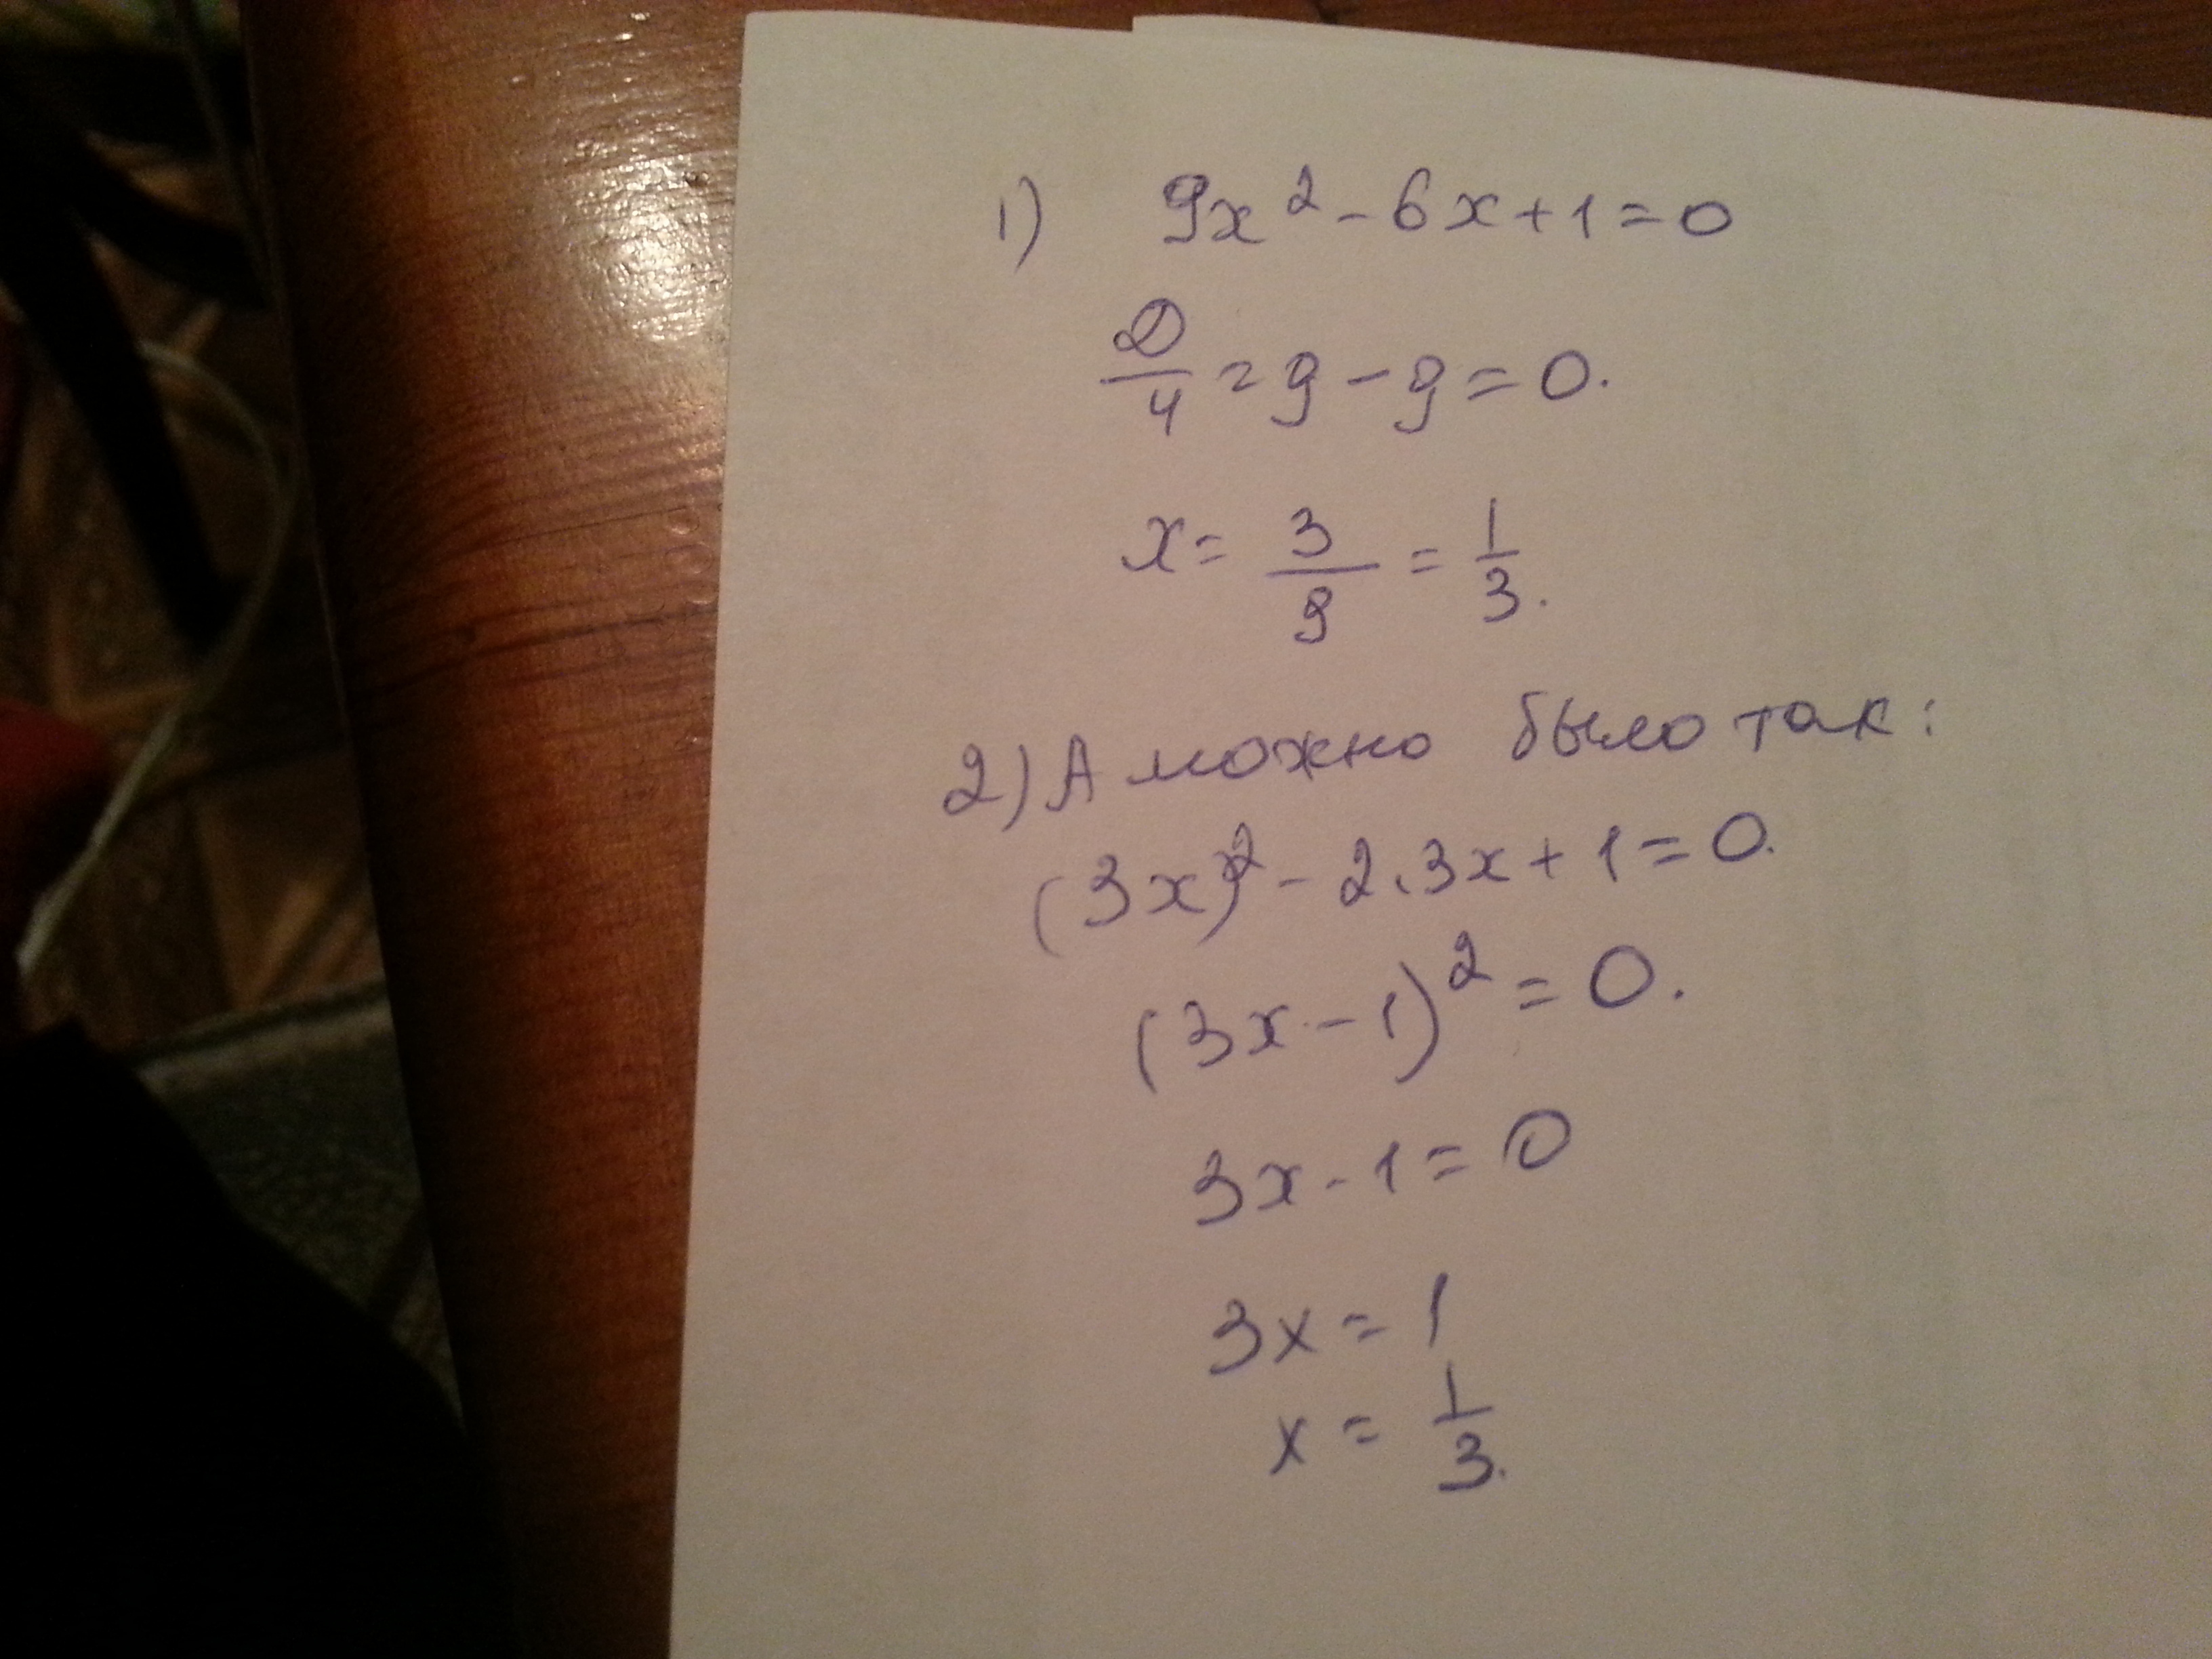 1) 9x² - 6x + 1 = 0
D/4 = 9 - 9 = 0.
x = 3/9 = 1/3.
2) А можно было так:
(3x)² - 2·3x + 1 = 0.
(3x - 1)² = 0.
3x - 1 = 0
3x = 1
x = 1/3.